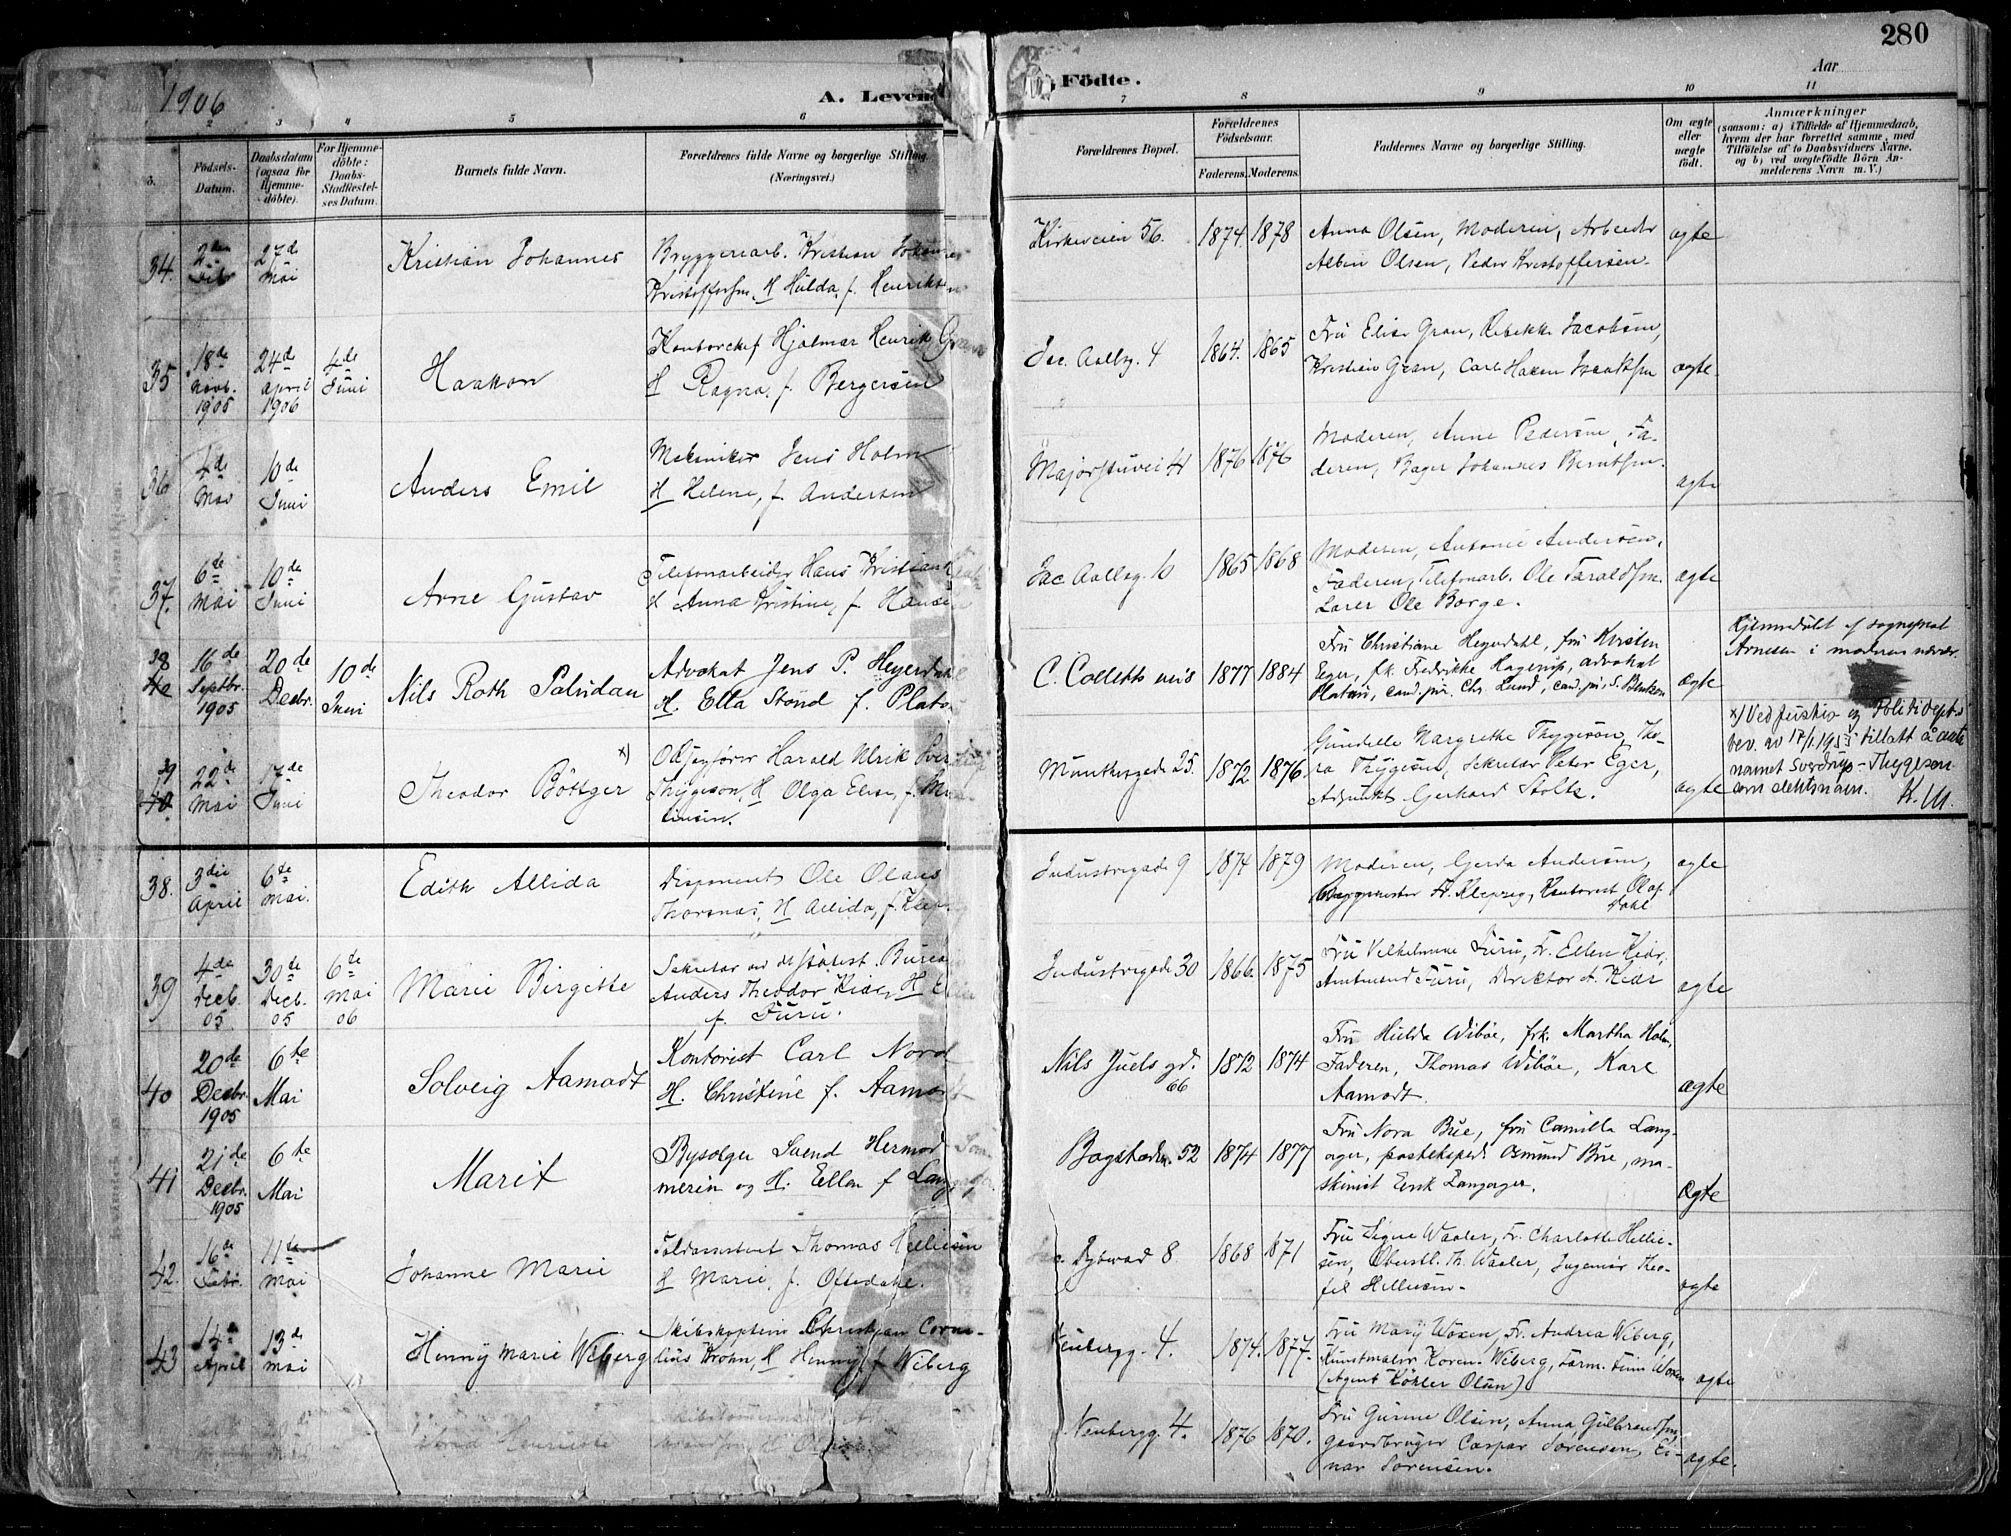 280
1906
A. Levende Födte.
Aar
2 3 4 5 6 7 8 9 10 11
Födsels-Datum.
Daabsdatum (ogsaa for Hjemmedöbte).
For Hjemmedöbte: Daabs-Stadfæstelses Datum.
Barnets fulde Navn.
Forældrenes fulde Navne og borgerlige Stilling. (Næringsvei.)
Forældrenes Bopæl.
Forældrenes Födselsaar.
Faderens. Moderens.
Faddernes Navne og borgerlige Stilling.
Om ægte eller uægte födt.
Anmærkninger
(saasom: a) i Tilfælde af Hjemmedaab,
hvem der har forrettet samme, med
Tilföielse af to Daabsvidners Navne.
og b) ved uægtefödte Börn An-
melderens Navn m. V.)
34. 2den Feb 27de Mai
Kristian Johannes
Bryggeriarb. Kristian Johannes
Kristoffersen, H Hulda, f. Henriksen
Kirkeveien 56. 1874. 1878
Anna Olsen, Moderen, Arbeider
Albin Olsen, Peder Kristoffersen.
ægte
35 18de Novb. 1905 24de April 1906 4de Juni
Haakon
Kontorchef Hjalmar Henrik Gran
H Ragna, f. Bergersen
Jac. Aallsg. 4 1864. 1865
Fru Elise Gran, Rebekke Jacobsen,
Kristian Gran, Carl Haken Isaksen
ægte.
36 4de Mai 10de Juni
Anders Emil
Mekaniker Jens Holm
H Helene, f. Andersen
Majorstuvei 41 1876 1876
Moderen, Anne Pedersen, Fa-
deren, Bager Johannes Berntsen.
ægte
37. 6te Mai 10de Juni
Arne Gustav
Telefonarbeider Hans Kristian
H Anna Kristine, f. Hansen
Jac Aallsg. 10 1865 1868
Moderen, Antonie Andersen,
Faderen, Telefonarb. Ole Taraldsen.
Lærer Ole Borge.
ægte
38 16de Septbr. 1905 20de Decbr. 10de Juni
Nils Roth Paludan
Advokat Jens P. Heyerdahl
H. Ella Stönd f. Platou
C. Colletts vei 8 1877 1884
Fru Christiane Heyerdahl, fru Kirsten
Eger, frk. Fredrikke Hagerup, advokat
Platou, cand. jur. Chr. Lund, cand. jur. S. Bentzon
ægte
Hjemmedöbt af sogneprest
Arnesen i moderens nærvær.
39 22de Mai 17de Juni
Theodor Böttger x)
Oljefører Harald Ulrik Sver
Thygeson, H Olga Elise, f. Mar
tinsen.
Munthesgade 25. 1872. 1876
Gundelle Margrethe Thygeson, Tho-
ra Thygeson, Sekretær Peter Eger,
Adjunkt Gerhard Stoltz.
ægte
x) Ved Justis og Politidept.s
bev. av 17/1 1955 tillatt å anta
navnet Sverdrup-Thygeson
som slektsnavn. K. M.
38. 3die April 6te Mai.
Edith Allida
Disponent Ole Olaus
Thorsnæs, H Allida, f. Klep
Industrigade 9 1874 1879
Moderen, Gerda Andersen,
Byggmester Fr. Klepzig, Kontorist Olaf
Dahl
ægte
39 4de Decb. 05 30te Decb. 05 6te Mai 06
Marie Birgitte
Sekretær ved det statist. Bureau
Anders Theodor Kiær, H Ella
f. Furu.
Industrigade 30 1866. 1875
Fru Vilhelmine Furu, Fr. Ellen Kiær,
Amtmand Furu, Direktør A. Kiær
ægte
40 20de Decbr. 1905 6te Mai
Solveig Aamodt
Kontorist Carl Nord
H. Christine f. Aamodt
Nils Juels gd. 66 1872 1874
Fru Hulda Wiböe, frk. Martha Holm,
Faderen, Thomas Wiböe, Karl
Aamodt.
ægte
41 21de Decbr. 1905 6te Mai
Marit
Bysælger Svend Hermod Som
merin og H. Ellen f Langager
Bogstadv. 52 1874 1877
Fru Nora Bue, fru Camilla Lang-
ager, postekspd. Osmund Bue, ma-
skinist Eirik Langager.
Ægte
42. 16de Febr. 11te Mai
Johanne Marie
Toldassistent Thomas Helliesen
H Marie, f. Oftedahl.
Jac. Dybwad 8. 1868 1871
Fru Signe Waaler, Fr. Charlotte Hellie-
sen, Oberstl. Th. Waaler, Ingeniør Theo-
fil Helliesen.
ægte
43 14de April 13de Mai
Henny Marie Wiberg
Skibskaptein Christian Corne-
lius Krohn, H Henny, f. Wiberg
Neubergg. 4. 1874. 1877.
Fru Mary Woxen, Fr. Andrea Wiberg,
Kunstmaler Koren-Wiberg, Farm. Finn Woxen
(Agent Köhler Olsen)
ægte
Henriette
Neubergg. 4. 1876 1870.
Fru Gunne Olsen, Anna Gulbrandsen,
Gaardbruger Caspar Sørensen, Ei-
nar Sørensen.
ægte.